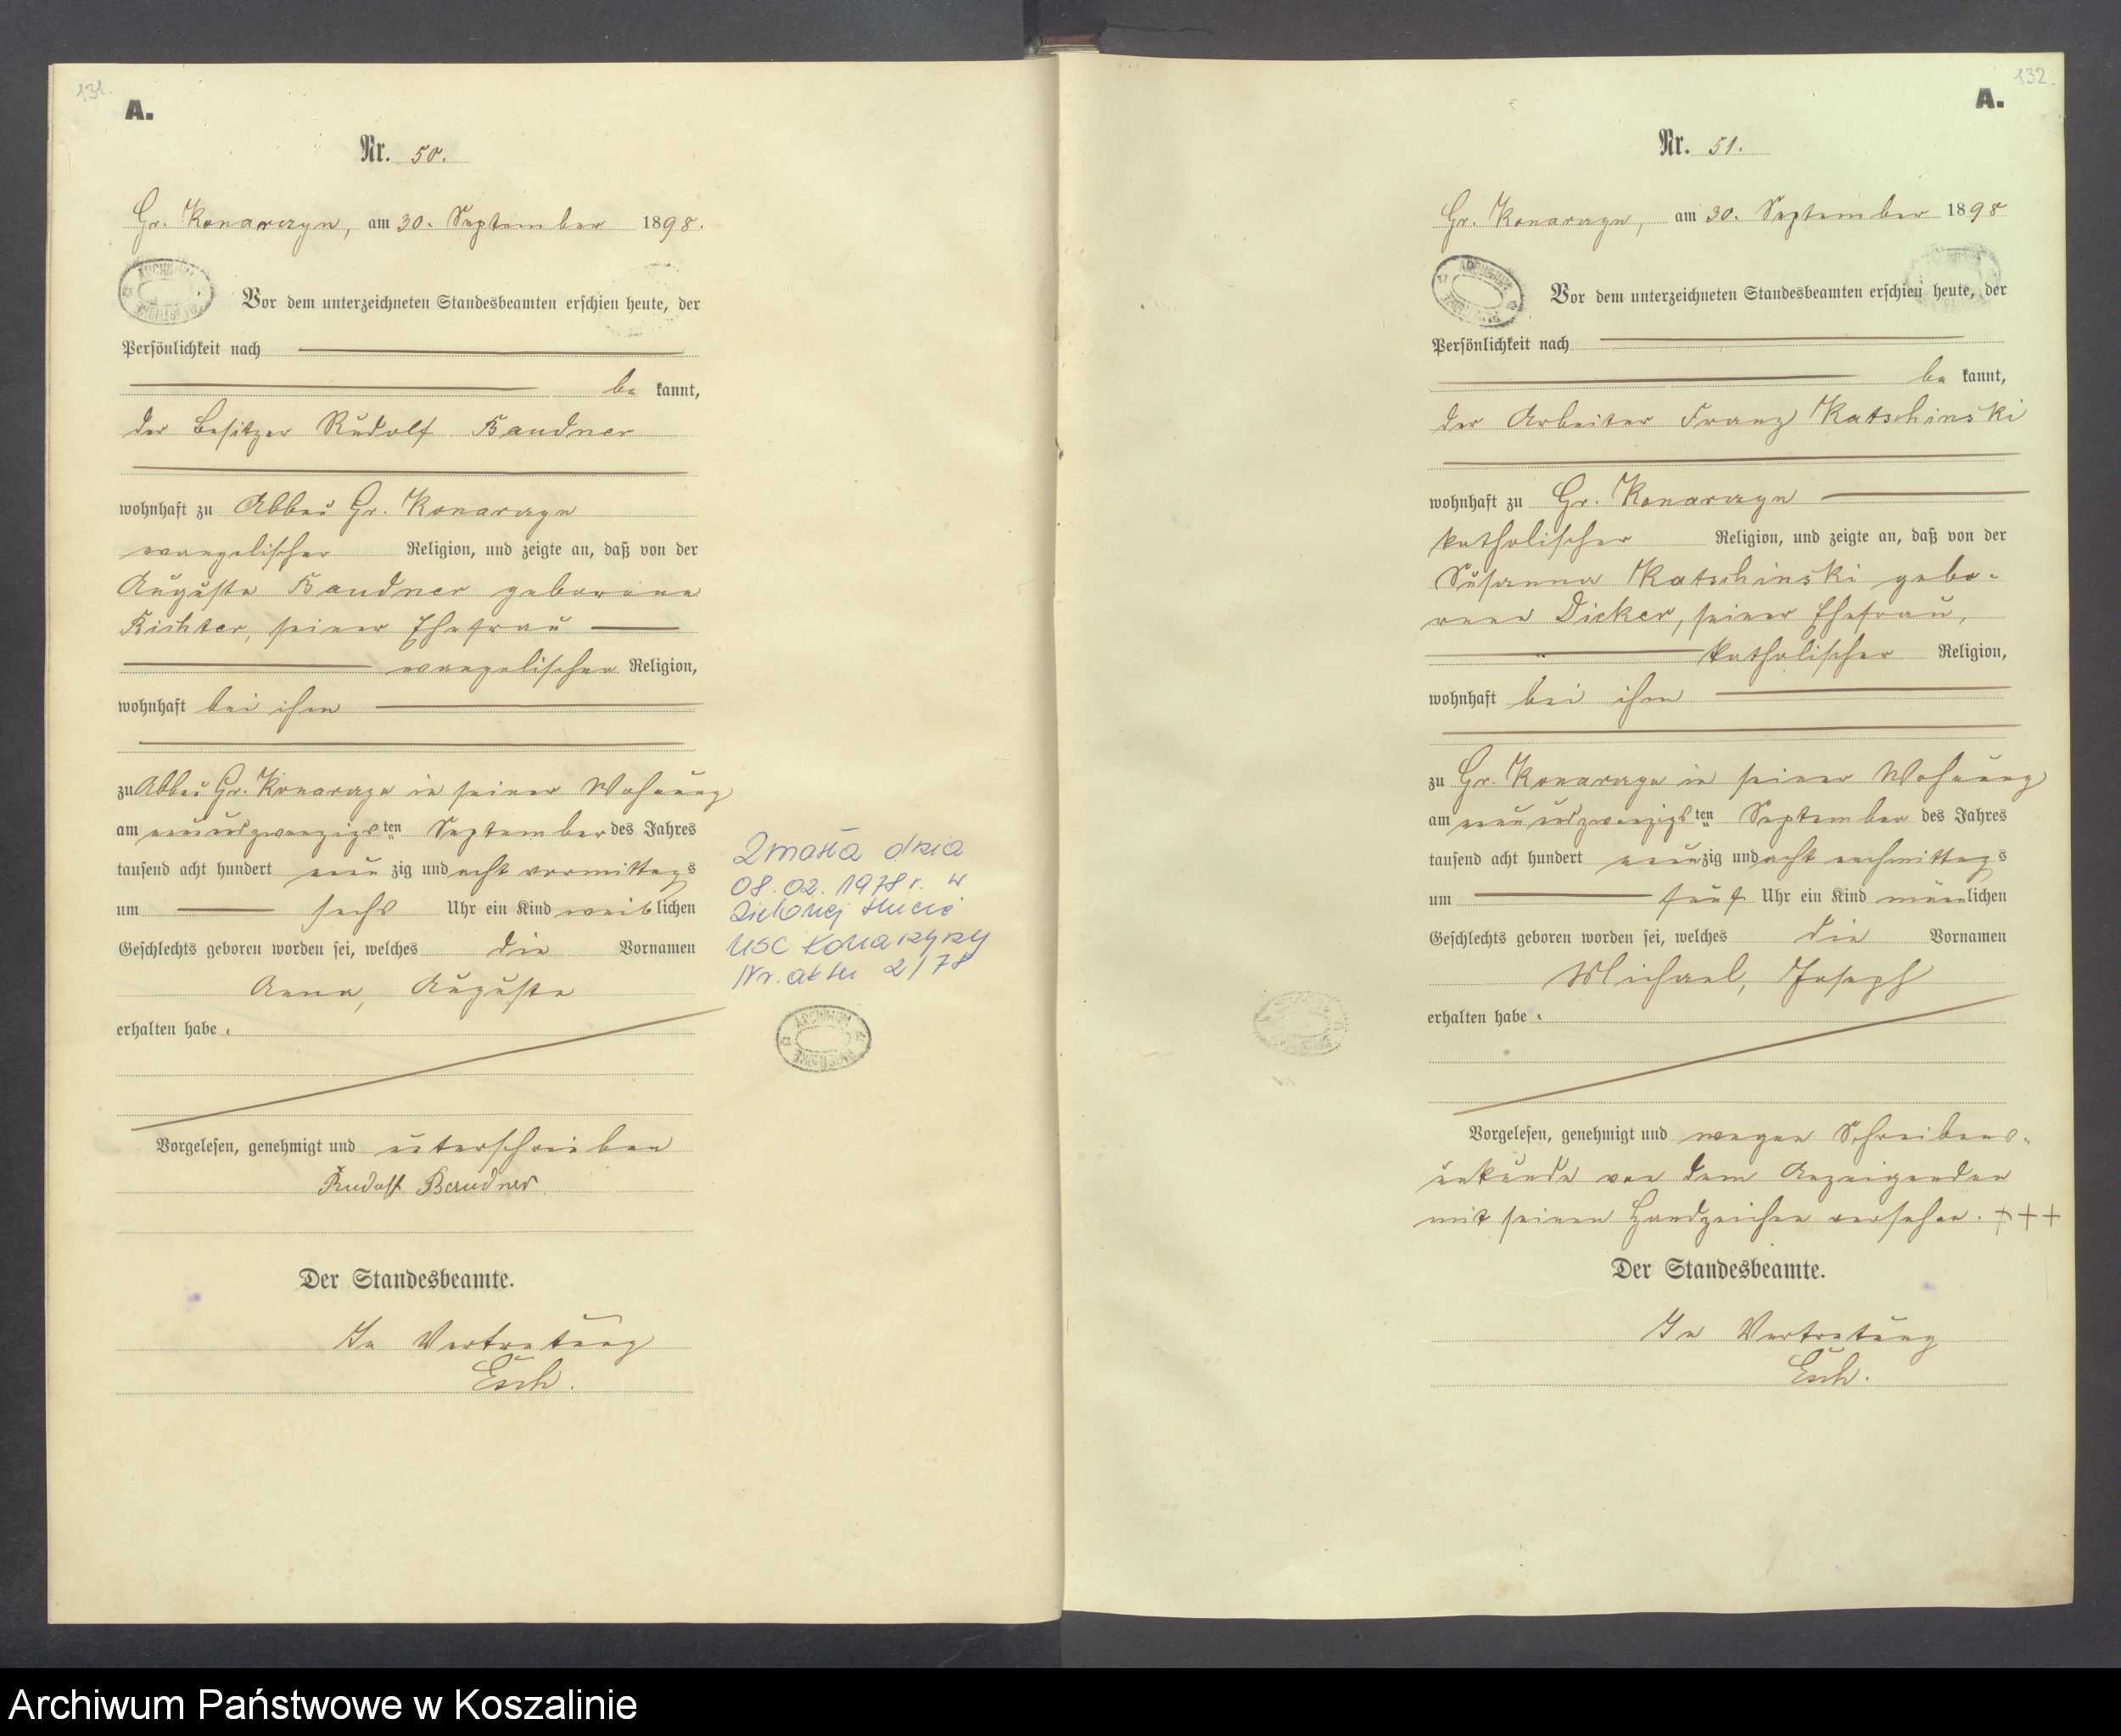 131.
A.
Nr. 50.
Gr. Konarczyn, am 30. September 1898.
Vor dem unterzeichneten Standesbeamten erschien heute, der
Persönlichkeit nach
be kannt,
der Besitzer Rudolf Bandner
wohnhaft zu Abbau Gr. Konarczyn
evangelischer Religion, und zeigte an, daß von der
Auguste Bandner geborene
Richter, seiner Ehefrau
evangelischer Religion,
wohnhaft bei ihm
zu Abbau Gr. Konarczyn in seiner Wohnung
am neunundzwanzigsten September des Jahres
tausend acht hundert neun zig und acht vormittags
um sechs Uhr ein Kind weiblichen
Geschlechts geboren worden sei, welches die Vornamen
Anna, Auguste
erhalten habe.
Vorgelesen, genehmigt und unterschrieben
Rudolf Bandner
Der Standesbeamte.
In Vertretung
Esch.
Zmarła dnia
08.02.1978 r. w
Zielonej Hucie
USC Konarzyny
Nr. aktu 2/78
ARCHIWUM
132.
A.
Nr. 51.
Gr. Konarczyn, am 30. September 1898
Vor dem unterzeichneten Standesbeamten erschien heute, der
Persönlichkeit nach
be kannt,
der Arbeiter Franz Katschinski
wohnhaft zu Gr. Konarczyn
katholischer Religion, und zeigte an, daß von der
Susanna Katschinski gebo-
rene Dicker, seiner Ehefrau,
katholischer Religion,
wohnhaft bei ihm
zu Gr. Konarczyn in seiner Wohnung
am neunundzwanzigsten September des Jahres
tausend acht hundert neunzig und acht nachmittags
um fünf Uhr ein Kind männlichen
Geschlechts geboren worden sei, welches die Vornamen
Michael, Joseph
erhalten habe.
Vorgelesen, genehmigt und wegen Schreibens-
unkunde von dem Anzeigenden
mit seinem Handzeichen versehen. +++
Der Standesbeamte.
In Vertretung
Esch.
Archiwum Państwowe w Koszalinie